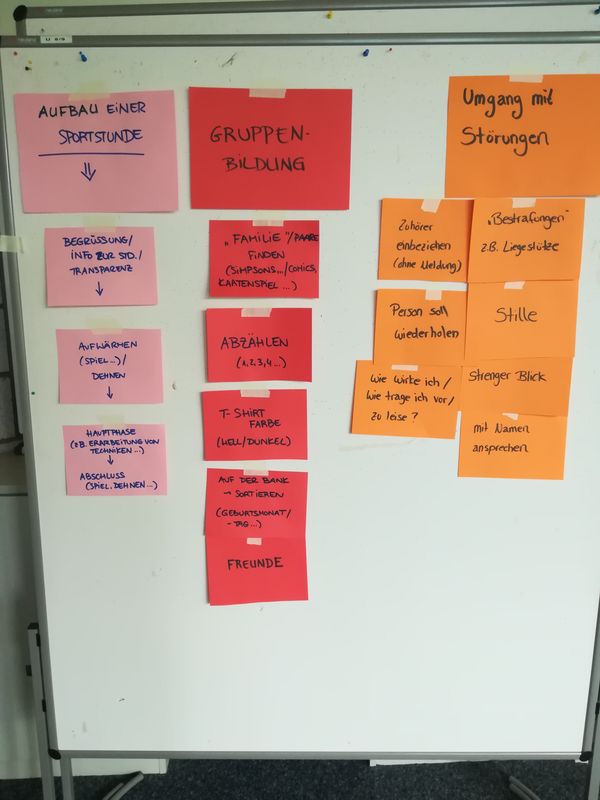 AUFBAU EINER
SPORTSTUNDE
⇓
BEGRÜSSUNG/
INFO ZUR STD./
TRANSPARENZ
↓
AUFWÄRMEN
(SPIEL...)/
DEHNEN
↓
HAUPTPHASE
(z.B. ERARBEITUNG VON
TECHNIKEN...)
↓
ABSCHLUSS
(SPIEL, DEHNEN...)
GRUPPEN-
BILDUNG
„FAMILIE"/PAARE
FINDEN
(SIMPSONS.../COMICS,
KARTENSPIEL...)
ABZÄHLEN
(1,2,3,4...)
T-SHIRT
FARBE
(HELL/DUNKEL)
AUF DER BANK
→ SORTIEREN
(GEBURTSMONAT/
-TAG...)
FREUNDE
Umgang mit
Störungen
Zuhörer
einbeziehen
(ohne Meldung)
Person soll
wiederholen
Wie wirke ich/
Wie trage ich vor/
zu leise?
„Bestrafungen"
z.B. Liegestütze
Stille
Strenger Blick
mit Namen
ansprechen